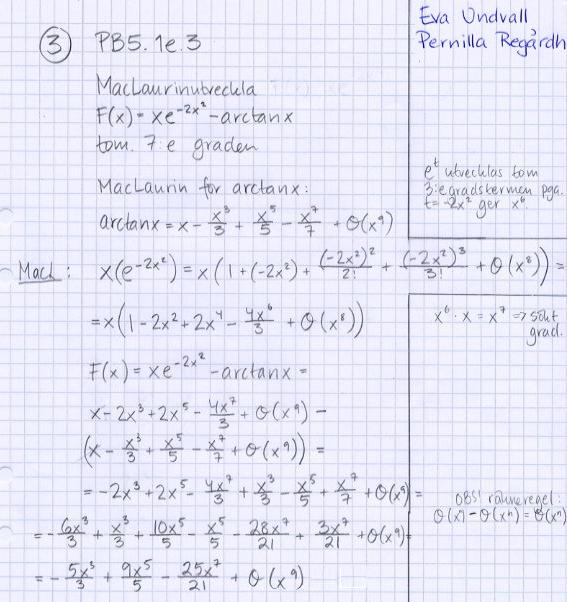 Eva Undvall
Pernilla Regårdh
③ PB5.1e.3
MacLaurinutveckla
F(x) = xe^{-2x²} - arctanx
tom. 7:e graden
MacLaurin for arctanx:
arctanx = x - x³/3 + x⁵/5 - x⁷/7 + O(x⁹)
e^t utvecklas tom
3:egradstermen pga.
t = -2x² ger x⁶.
Macl: x(e^{-2x²}) = x(1 + (-2x²) + (-2x²)²/2! + (-2x²)³/3! + O(x⁸)) =
= x(1 - 2x² + 2x⁴ - 4x⁶/3 + O(x⁸))
x⁶ · x = x⁷ => sökt
grad.
F(x) = xe^{-2x²} - arctanx =
x - 2x³ + 2x⁵ - 4x⁷/3 + O(x⁹) -
(x - x³/3 + x⁵/5 - x⁷/7 + O(x⁹)) =
= -2x³ + 2x⁵ - 4x⁷/3 + x³/3 - x⁵/5 + x⁷/7 + O(x⁹) =
OBS! räkneregel:
O(xⁿ) - O(xⁿ) = O(xⁿ)
= -6x³/3 + x³/3 + 10x⁵/5 - x⁵/5 - 28x⁷/21 + 3x⁷/21 + O(x⁹) =
= -5x³/3 + 9x⁵/5 - 25x⁷/21 + O(x⁹)